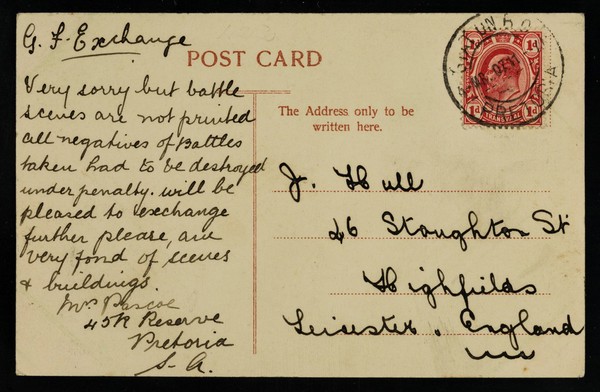 G. F. Exchange
POST CARD
Very sorry but battle
scenes are not printed
all negatives of Battles
taken had to be destroyed
under penalty. will be
pleased to exchange
further please, am
very fond of scenes
& buildings.
Mrs Pascoe
45R Reserve
Pretoria
S. A.
The Address only to be
written here.
J. Hull
46 Stoughton St
Highfields
Leicester. England
1d 1d
1d 1d
TRANSVAAL
PRETORIA